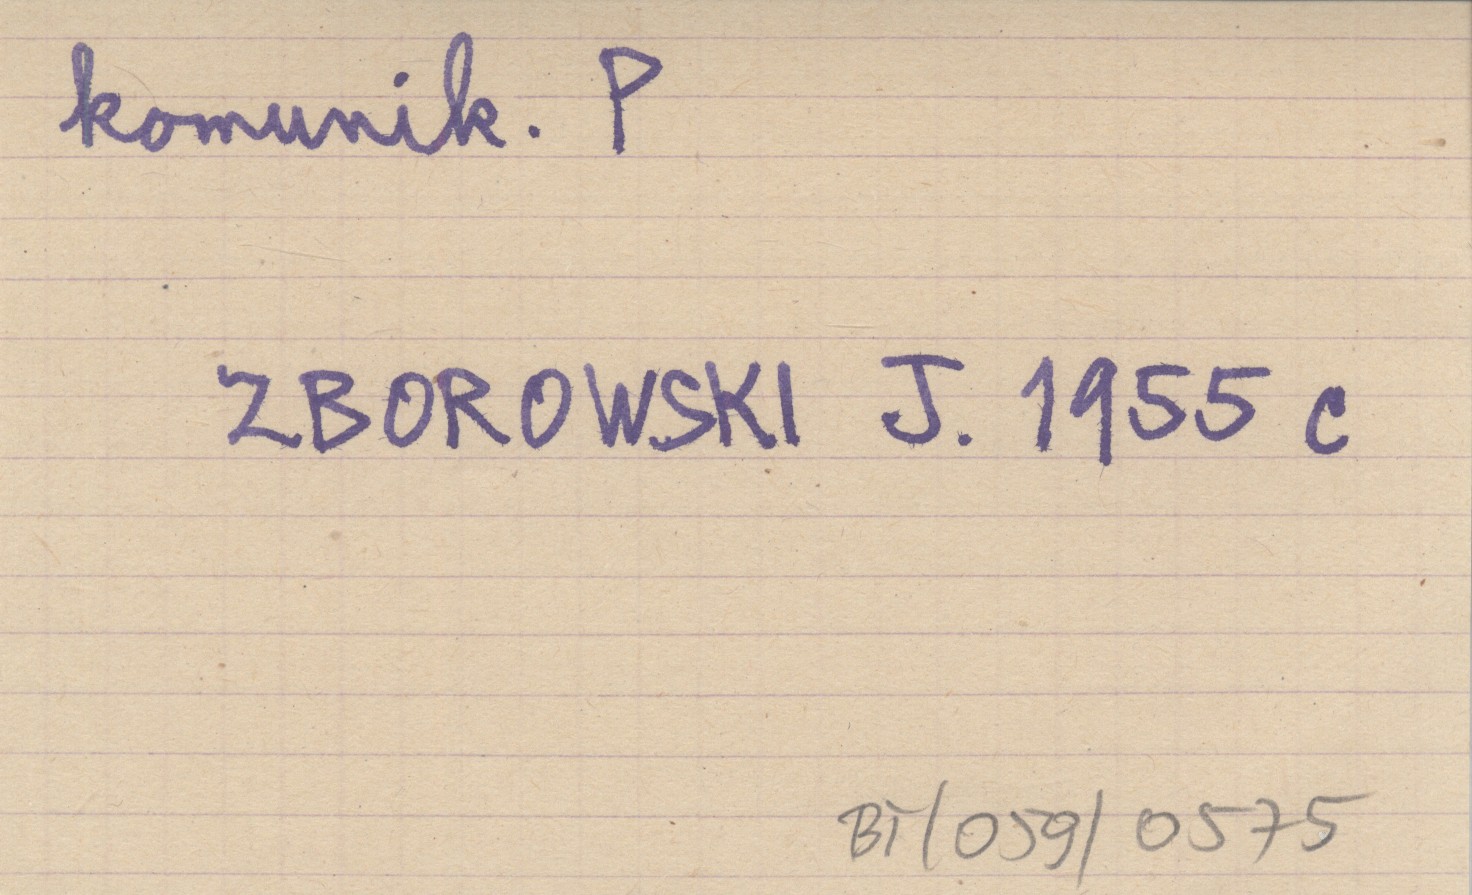 komunik. P
ZBOROWSKI J. 1955 c
BT/059/0575